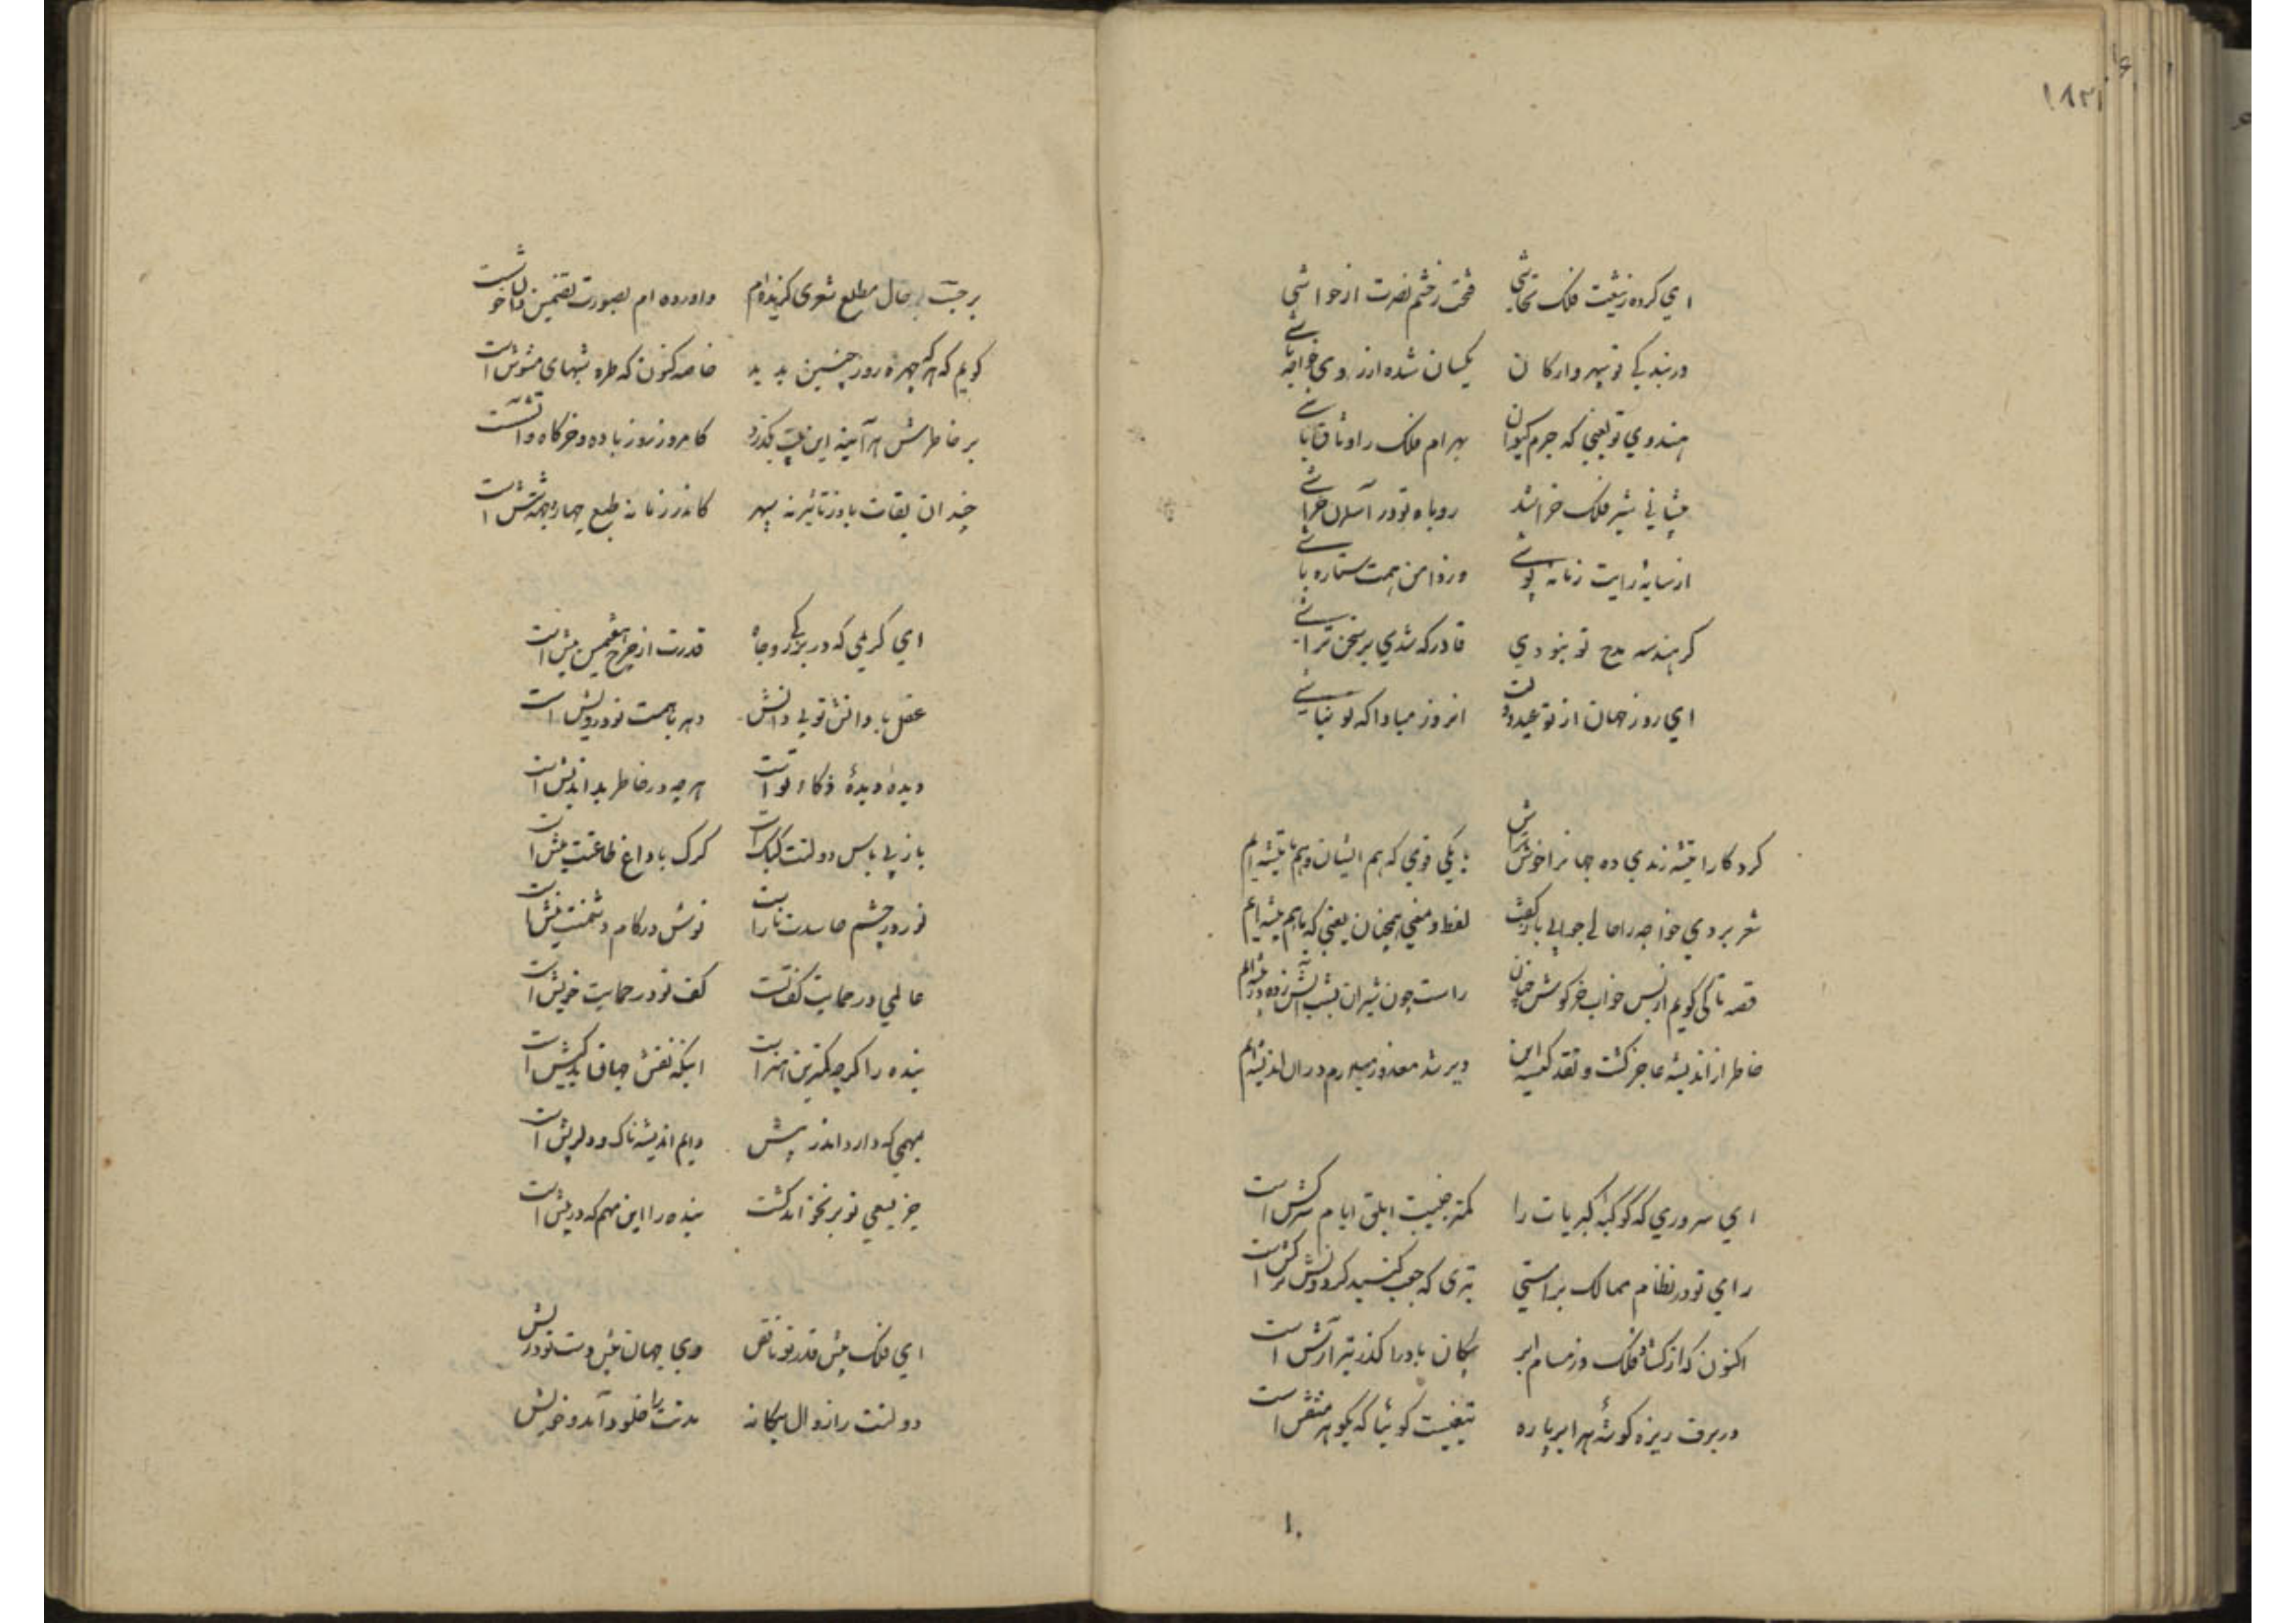 ۱۸۳
ای کرده ز تیغت فلک تحاشی فتحت ز حشم نصرت از حواشی
در بندگی تو سپهر و ارکان یکسان شده از روی خواجه تاشی
هندوی تو یعنی که جرم کیوان بهرام فلک را وثاق باشی
پیشانی شیر فلک خراشد روباه تو در آسمان خراشی
از سایه رایت زمانه پوشی وز دامن همت ستاره پاشی
گر هندسه مدح تو نبودی قادر که شدی بر سخن تراشی
ای روز جهان از تو عید دولت آن روز مبادا که تو نباشی
کردگارا قیشه رندی ده جهان را خوش تراش تا یکی قومی که هم ایشان و هم ما تیشه ایم
شعر بردی خواجه را حالی جوابی باز گفت لفظ و معنی همچنان یعنی که ما هم پیشه ایم
قصه تا کی گویم از بس خواب خرگوش خسان راست چون شیران بشب آتش زده در بیشه ایم
خاطر از اندیشه عاجز گشت و نقد کیسه این دیر شد معذور میدارم در آن اندیشه ایم
ای سروری که کوکبه کبریات را کمتر جنیبت ابلق ایام سرکش است
رای تو در نظام ممالک براستی تیری که جیب گنبد گردونش ترکش است
اکنون که از گشاد فلک در مسام ابر پیکان باد را گذر تیر آرش است
در برف ریزه گوشه هر ابرپاره تیغیست گوئیا که بگوهر منقش است
۱۰
بر حسب حال مطلع شعری گزیده ام و آورده ام بصورت تضمین و آن خوش است
گویم که هر که چهره روز چنین بدید خاصه کنون که طره شبهای مشوش است
بر خاطرش هر آینه این بیت بگذرد کامروز روز باده و خرگاه و آتش است
چندان بقات باد ز تأثیر نه سپهر کاندر زمانه طبع چهار و جهت شش است
ای کریمی که در بزرگی و جاه قدرت از چرخ هفتمین بیش است
عقل با دانش تو بی دانش دهر با همت تو درویش است
دیده دیدهٔ ذکاء تو است هر چه در خاطر بداندیش است
باز بی باس دولتت کبک است گرگ با داغ طاعتت میش است
نور در چشم حاسدت نار است نوش در کام دشمنت نیش است
عالمی در حمایت کف تست کف تو در حمایت خویش است
بنده را گرچه کمترین هنر است اینکه نقش جهان بدکیش است
مهمی که دارد اندر پیش دایم اندیشه ناک و دلریش است
جز بسعی تو بر نخواهد گشت بنده را این مهم که در پیش است
ای فلک پیش قدر تو ناقص وی جهان پیش دست تو درویش
دولتت را زوال بیگانه مدتت را خلود آمد و خویش